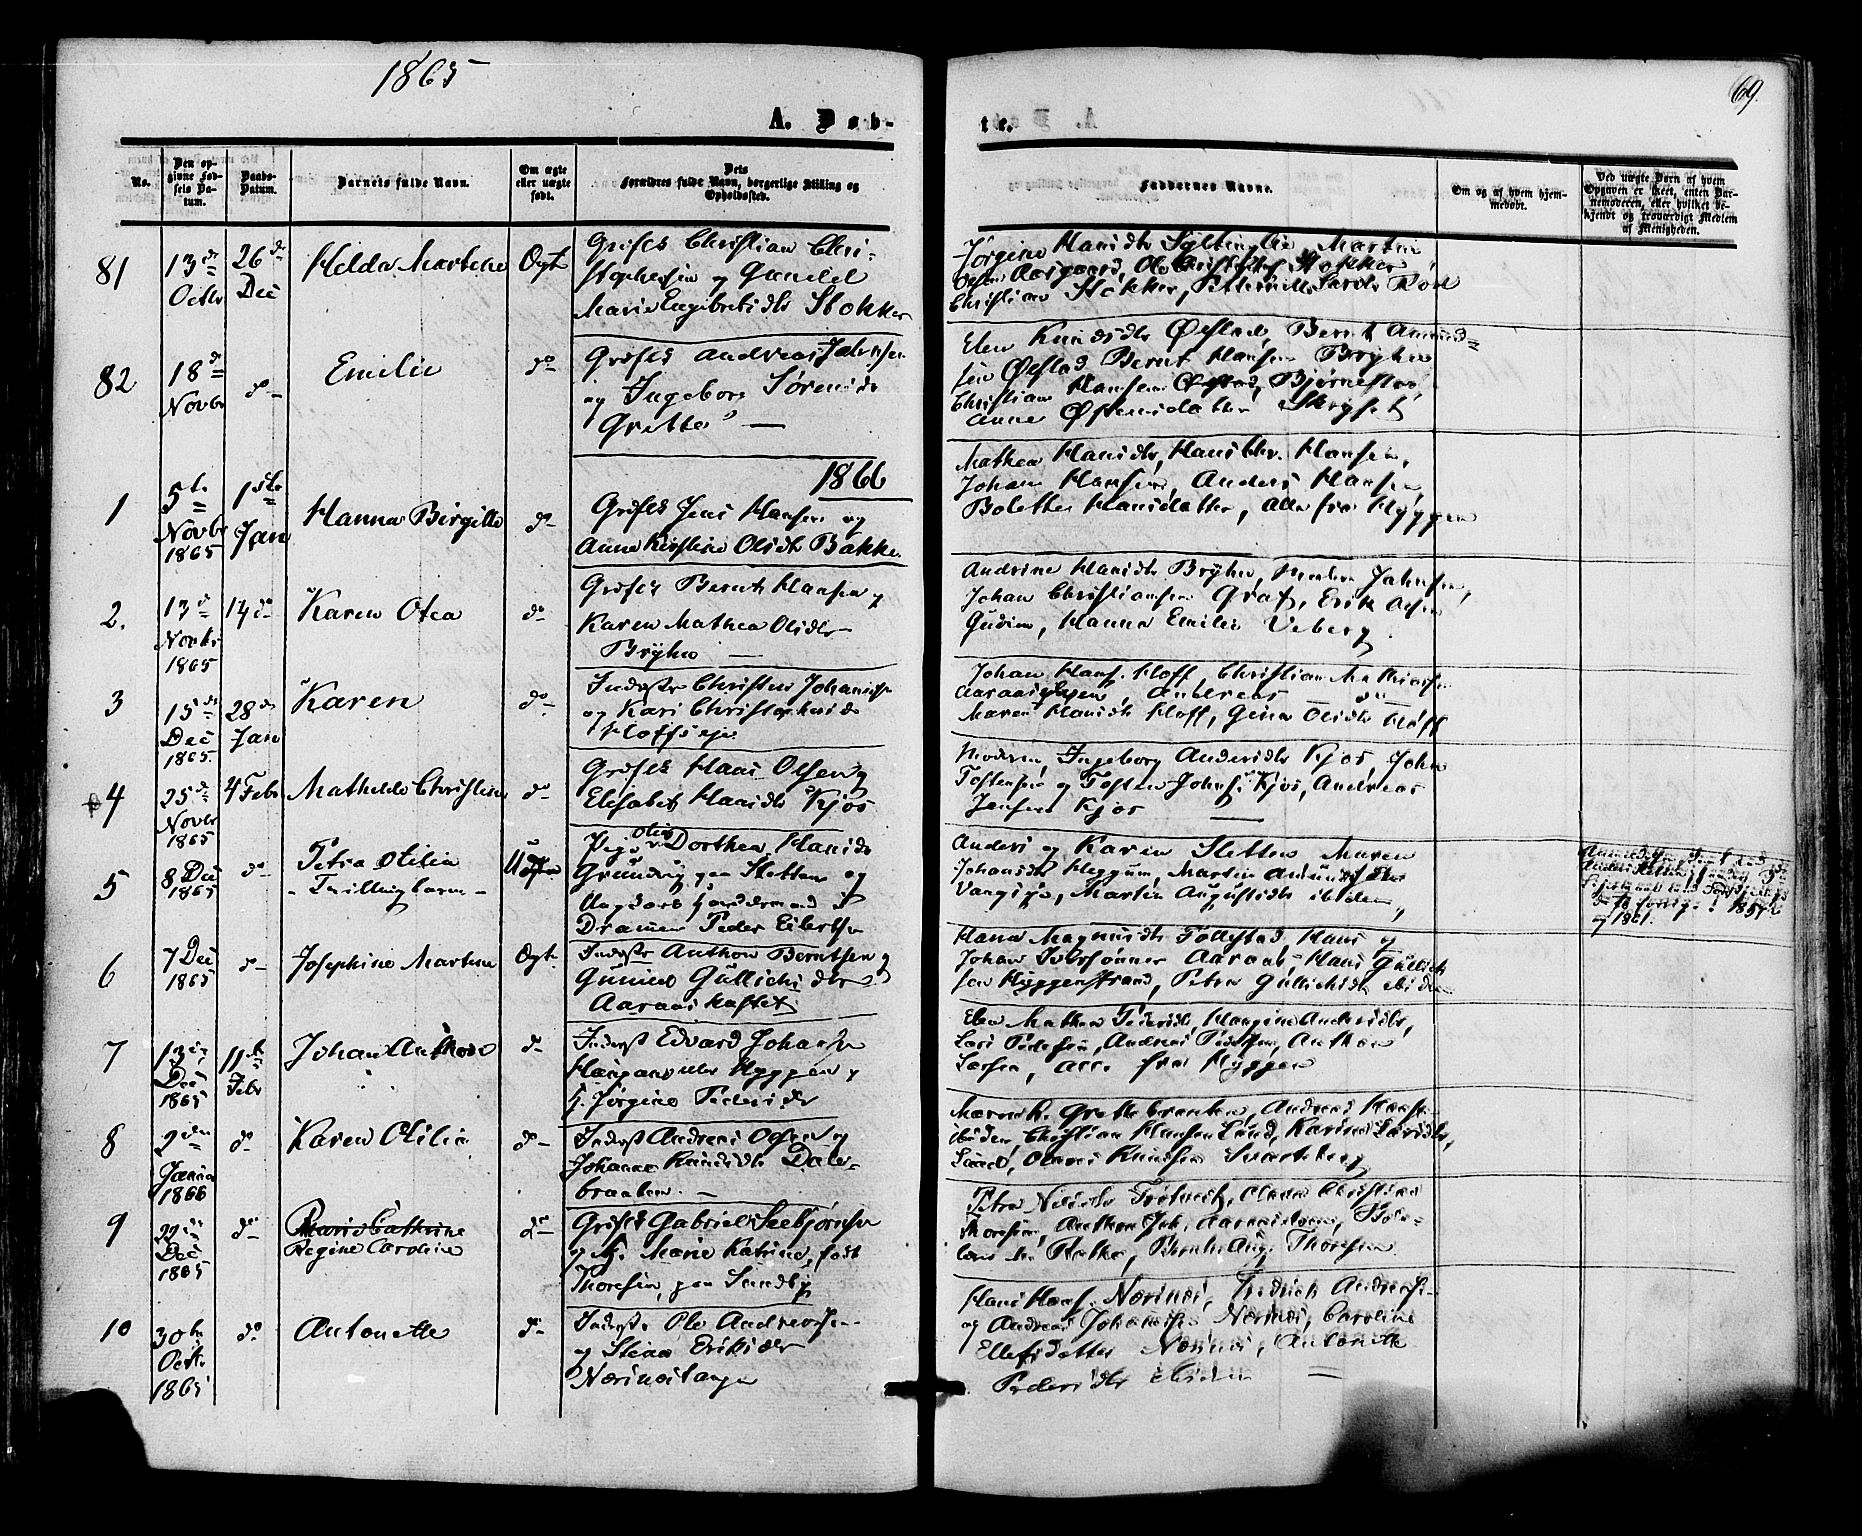 1865
69.
A. Døb-
te.
No.
Den op-
givne Fød-
sels Da-
tum.
Daabs-
Datum.
Barnets fulde Navn.
Om ægte
eller uægte
født.
Dets
Forældres fulde Navn, borgerlige Stilling og
Opholdssted.
Faddernes Navne.
Om og af hvem hjem-
medøbt.
Ved uægte Børn af hvem
Opgaven er skeet, enten Bar-
nemoderen, eller hvilket be-
kjendt og troværdigt Medlem
af Menigheden.
81
13de
Octbr
26de
Dec
Helda Martine
Ægt
Grdfs Christian Chri-
stophersen og Gunild
Marie Engebretsdtr Stokker
Jørgine Hansdtr Martin
Olsen Aasgaard, Ole Stokker
Christian Stokker,
82
18de
Novbr
do
Emilie
do
Grdfs Andreas Johnsen
og Ingeborg Sørensdtr
Gretta
Elen Knudsdtr Øfstad, Bernt Amund-
sen Øfstad Bernt Hansen Bryhn
Christian Hansen Øfstad,
Anne
1866
1
5te
Novbr
1865
1ste
Jan
Hanna Birgitte
do
Grdfs Jens Hansen og
Anne Kirstine Olsdtr Bakke
Mathea Hansdtr, Hans Chr. Hansen,
Johan Hansen, Anders Hansen
Bolette Hansdatter, alle fra Hyggen
2.
13de
Novbr
1865
14 do
Karen Otea
do
Grdfs Bernt Hansen og
Karen Mathea Olsdtr
Bryhn
Andrine Hansdtr Bryhn, Johnsen,
Johan Christiansen Graf, Erik Olsen
Gudim, Hanna Emilie Viberg
3
15de
Dec
1865.
28de
Jan
Karen
do
Inderst Christen Johannesen
og Kari Christophersdtr
Hoffseje
Johan Hans. Hoff, Christian Mathiesen
Andreas do
Maren Hansdtr Hoff, Gina Olsdtr Hoff
4
25de
Novbr
1865
4 Febr
Mathilde Christine
do
Grdfs Hans Olsen og
Elisabet Hansdtr Kjos
Moderen, Ingeborg Andersdtr Kjos, John
Tostensen og Tosten Johns. Kjos, Andreas
Jensen Kjos
5
8 Dec
1865
do
Petra Otilia
Tvillingbarn
Uægte
Pige Dorthea Hansdtr
Grunding paa Sletten og
Ungkarl Handelsmand i
Drammen Peder Eilertsen
Anders og Karen Sletten Maren
Johansdtr Heggum, Martin Amundsen
Martin Augustsdtr ibidem,
1857
og 1861.
6
7 Dec
1865
do
Josephine Martine
Ægt.
Inderst Anthon Berntsen og
Gunild Gullichsdtr
Hana Magnusdtr Follestad, Hans og
Johan Iversønner Aaraas, Hans Gullich-
sen Hyggenstrand, Petra Gullichsdtr ibidem
7
13de
Dec
1865
11te
Febr
Johan Anthon
do
Inderst Edvard Johansen
Hyggen og
H. Jørgine Pedersdtr
Elen Mathea Pedersdtr, Hangine Andersdtr,
Lars Pedersen, Andreas Pedersen, Anthon
Larsen, alle fra Hyggen
8
2den
Januar
1866
do
Karen Otilie
do
Inderst Andreas Olsen og
Johanne Knudsdtr Dale-
braaten.
Grettebraaten, Andreas
ibidem, Christian Hansen Lund, Karine Larsdtr,
Lund, Olaves Knudsen Svarteberg
9
22de
Dec
1865
do
Marie Cathrine
Regine Caroline
do
Grdfs Gabriel Seebjørnsen
og H. Marie Katrine, født
Thoresen, paa Sundby
Petra Nilsdtr Trøtvedt, Olava Christine
Thoresen, Anthon Joh. Thoresen
10
30te
Octbr.
1865
do
Antonette
do
Inderst Ole Andreassen
og Stina Eriksdtr
Nærsnestangen
Hans Hans. Nærsnes, Fredrick Anders.
og Andreas Johannesen Nærsnes, Caroline
Ellefsdatter Nærsnes, Antonette
Pedersdtr ibidem